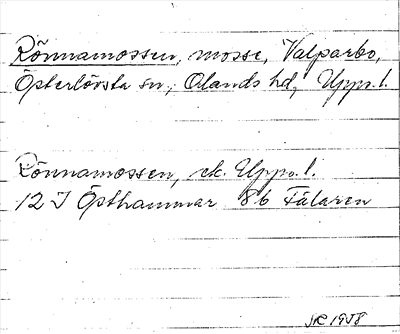 Rönnamossen, mosse, Valparbo,
Österlövsta sn, Olands hd, Upps. l.
Rönnamossen, ek. Upps. l.
12 I Östhammar 8b Fälaren
1958